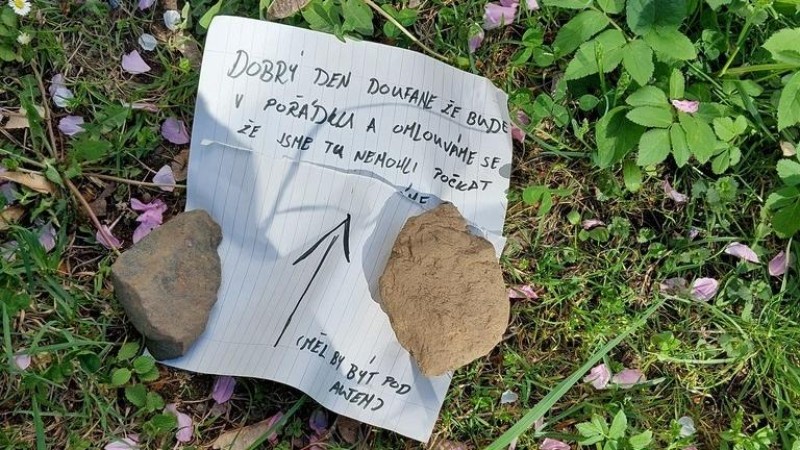 DOBRÝ DEN DOUFANE ŽE BUDE
V POŘÁDKU A OMLOUVÁME SE
ŽE JSME TU NEMOHLI POČKAT
(MĚL BY BÝT POD
AUTEM)